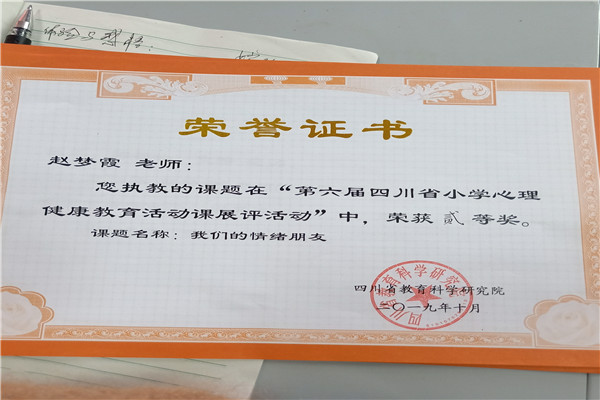 荣誉证书
赵梦霞 老师：
您执教的课题在“第六届四川省小学心理
健康教育活动课展评活动”中，荣获贰等奖。
课题名称：我们的情绪朋友
四川省教育科学研究院
二〇一九年十月
四川省教育科学研究院